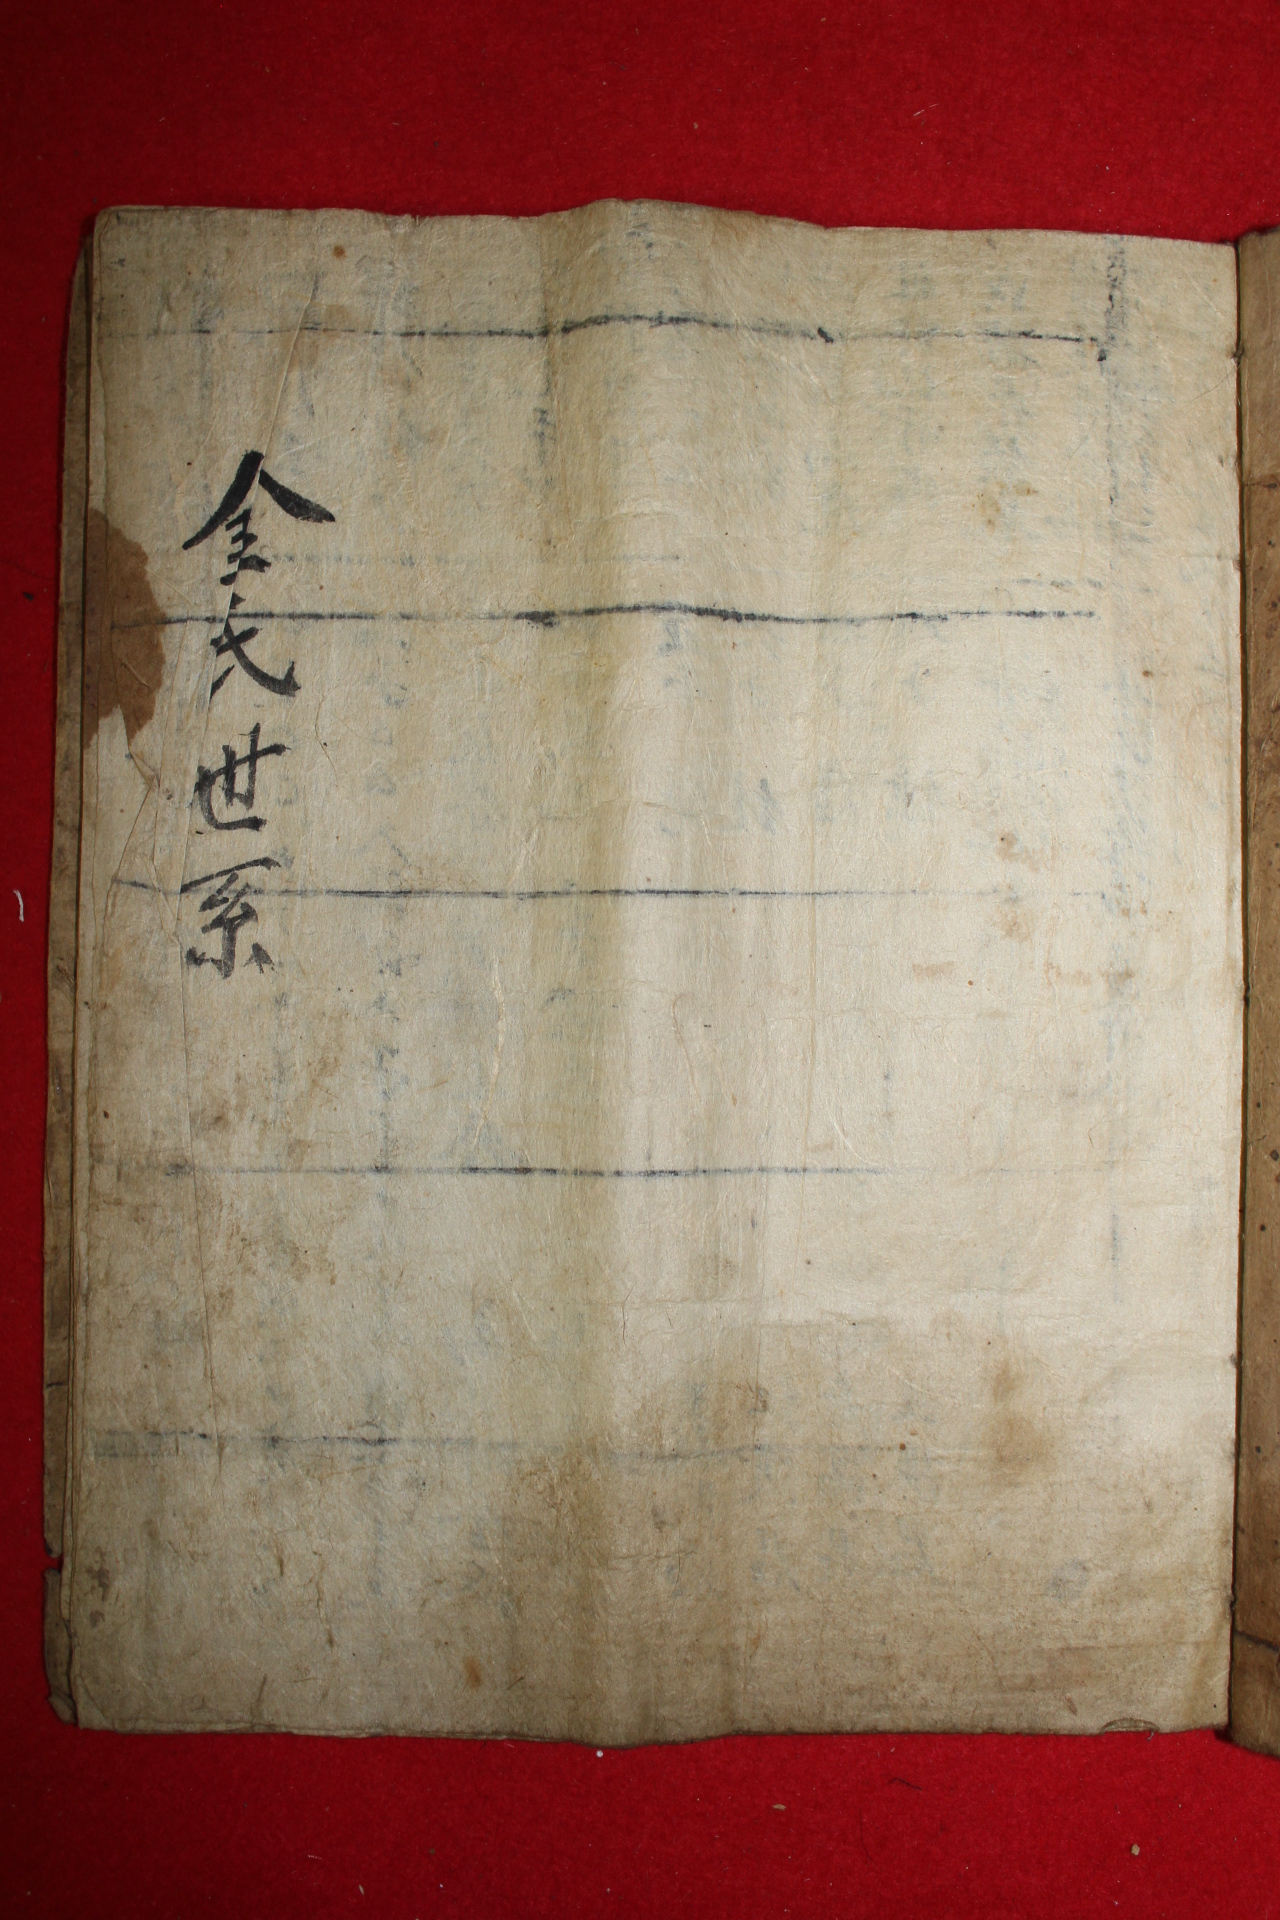 金氏世系